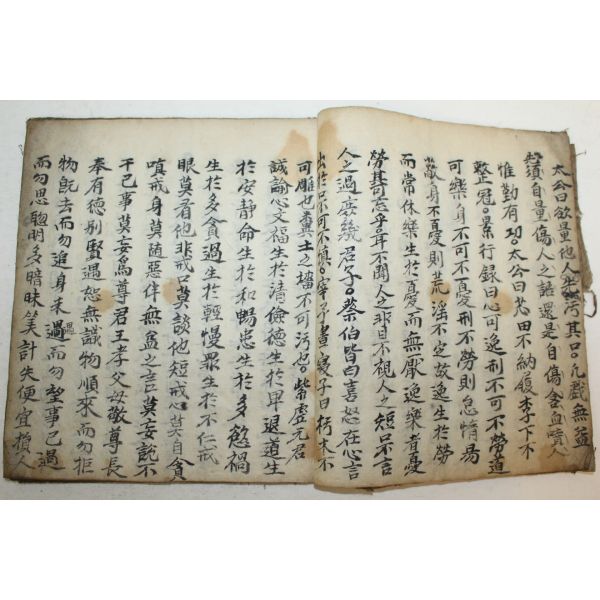 太公曰欲量他人先汚其口凡戲無益
須自量傷人之語還是自傷含血噴人
惟勤有功太公曰苽田不納履李下不
整冠景行錄曰心可逸刑不可不勞道
可樂身不可不憂刑不勞則怠惰易
敝身不憂則荒滛不定故逸生於勞
而常休樂生於憂而無厭逸樂者憂
勞豈忘乎耳不聞人之非目不視人之短口不言
人之過庶幾君子蔡伯皆曰喜怒在心言
出於口不可不愼宰予晝寢子曰朽木不
可雕也糞土之墻不可污也紫虛元君
誠諭心文福生於淸儉德生於卑退道生
於安靜命生於和暢患生於多慾禍
生於多貪過生於輕慢罪生於不仁戒
眼莫看他非戒口莫談他短戒心莫自貪
嗔戒身莫隨惡伴無益之言莫妄說不
干己事莫妄爲尊君王孝父母敬尊長
奉有德別賢遇恕無識物順來而勿拒
物旣去而勿追身未遇而勿望事已過
而勿思聰明多暗昧筭計失便宜損人